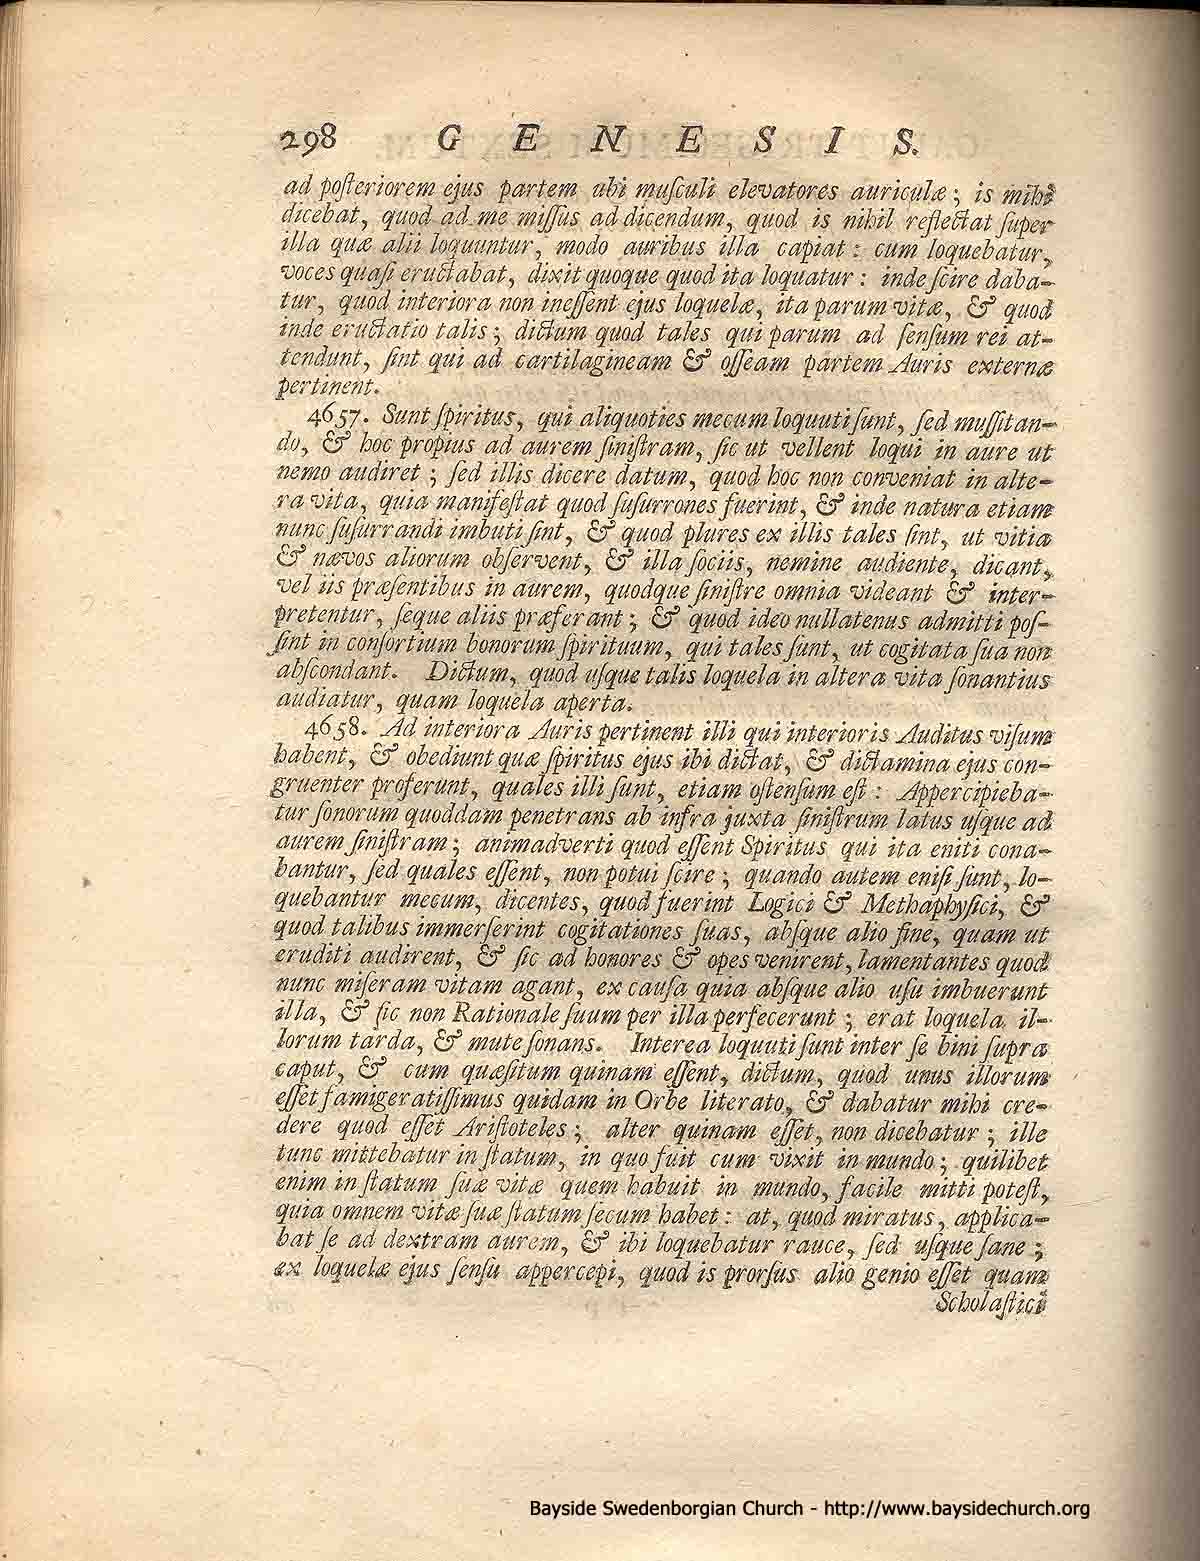 298 G E N E S I S.
ad poſteriorem ejus partem ubi muſculi elevatores auriculæ; is mihi
dicebat, quod ad me miſſus ad dicendum, quod is nihil reflectat ſuper
illa quæ alii loquuntur, modo auribus illa capiat: cum loquebatur,
voces quaſi eructabat, dixit quoque quod ita loquatur: inde ſcire daba-
tur, quod interiora non ineſſent ejus loquelæ, ita parum vitæ, & quod
inde eructatio talis; dictum quod tales qui parum ad ſenſum rei at-
tendunt, ſint qui ad cartilagineam & oſſeam partem Auris externæ
pertinent.
4657. Sunt ſpiritus, qui aliquoties mecum loquuti ſunt, ſed muſſitan-
do, & hoc propius ad aurem ſiniſtram, ſic ut vellent loqui in aure ut
nemo audiret; ſed illis dicere datum, quod hoc non conveniat in alte-
ra vita, quia manifeſtat quod ſuſurrones fuerint, & inde natura etiam
nunc ſuſurrandi imbuti ſint, & quod plures ex illis tales ſint, ut vitia
& nævos aliorum obſervent, & illa ſociis, nemine audiente, dicant,
vel iis præſentibus in aurem, quodque ſiniſtre omnia videant & inter-
pretentur, ſeque aliis præferant; & quod ideo nullatenus admitti poſ-
ſint in conſortium bonorum ſpirituum, qui tales ſunt, ut cogitata ſua non
abſcondant. Dictum, quod uſque talis loquela in altera vita ſonantius
audiatur, quam loquela aperta.
4658. Ad interiora Auris pertinent illi qui interioris Auditus viſum
habent, & obediunt quæ ſpiritus ejus ibi dictat, & dictamina ejus con-
gruenter proferunt, quales illi ſunt, etiam oſtenſum eſt: Appercipieba-
tur ſonorum quoddam penetrans ab infra juxta ſiniſtrum latus uſque ad
aurem ſiniſtram; animadverti quod eſſent Spiritus qui ita eniti cona-
bantur, ſed quales eſſent, non potui ſcire; quando autem eniſi ſunt, lo-
quebantur mecum, dicentes, quod fuerint Logici & Methaphyſici, &
quod talibus immerſerint cogitationes ſuas, abſque alio fine, quam ut
eruditi audirent, & ſic ad honores & opes venirent, lamentantes quod
nunc miſeram vitam agant, ex cauſa quia abſque alio uſu imbuerunt
illa, & ſic non Rationale ſuum per illa perfecerunt; erat loquela il-
lorum tarda, & mute ſonans. Interea loquuti ſunt inter ſe bini ſupra
caput, & cum quæſitum quinam eſſent, dictum, quod unus illorum
eſſet famigeratiſſimus quidam in Orbe literato, & dabatur mihi cre-
dere quod eſſet Ariſtoteles; alter quinam eſſet, non dicebatur; ille
tunc mittebatur in ſtatum, in quo fuit cum vixit in mundo; quilibet
enim in ſtatum ſuæ vitæ quem habuit in mundo, facile mitti poteſt,
quia omnem vitæ ſuæ ſtatum ſecum habet: at, quod miratus, applica-
bat ſe ad dextram aurem, & ibi loquebatur rauce, ſed uſque ſane;
ex loquelæ ejus ſenſu appercepi, quod is prorſus alio genio eſſet quam
Scholaſtici
Bayside Swedenborgian Church - http://www.baysidechurch.org